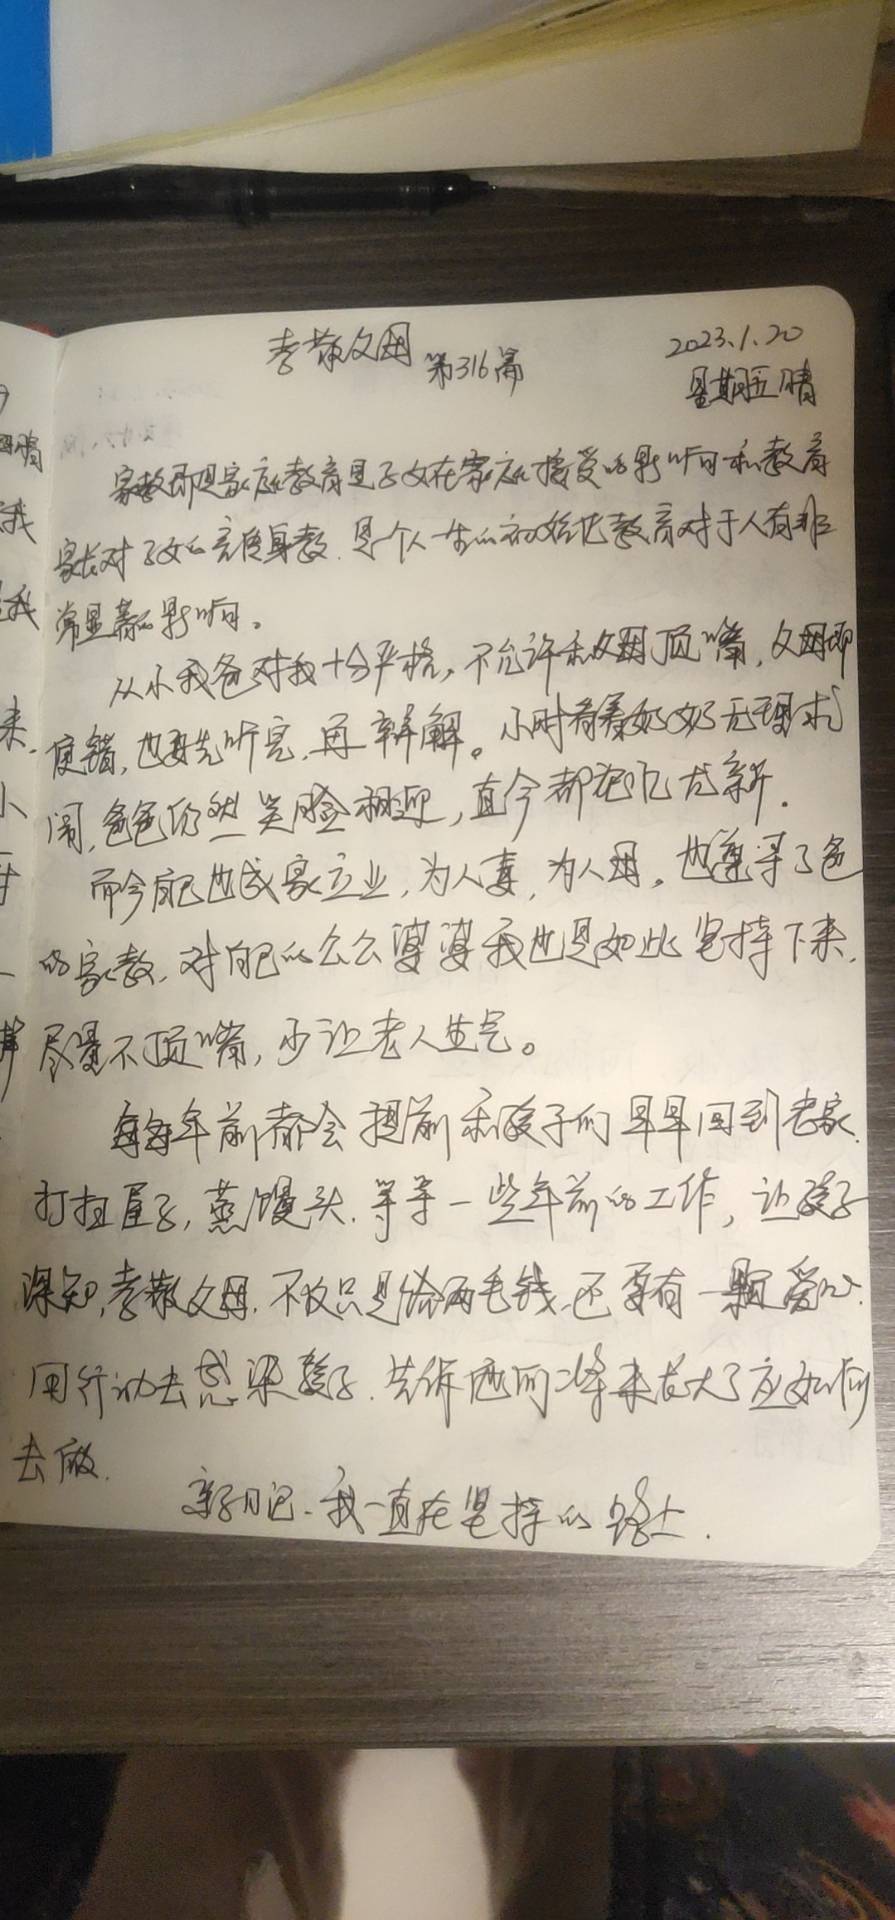 孝敬父母 第316篇
2023.1.20
星期五 晴
家教即是家庭教育是子女在家庭接受的影响和教育
家长对子女的言传身教.是个人一生的初始化教育对于人有非
常显著的影响。
从小我爸对我十分严格,不允许和父母顶嘴,父母即
使错,也要先听完,再辩解。小时看着奶奶无理取
闹,爸爸仍然笑脸相迎,直今都记忆尤新.
而今自己也成家立业,为人妻,为人母。也遵寻了爸
的家教,对自己的公公婆婆我也是如此坚持下来,
尽量不顶嘴,少让老人生气。
每每年前都会提前和孩子们早早回到老家.
打扫屋子,蒸馒头.等等一些年前的工作,让孩子
深知,孝敬父母.不仅只是给两毛钱.还要有一颗爱心.
用行动去感染孩子.告诉他们将来长大了应如何
去做.
亲子日记.我一直在坚持的路上.
我
我
来.
小